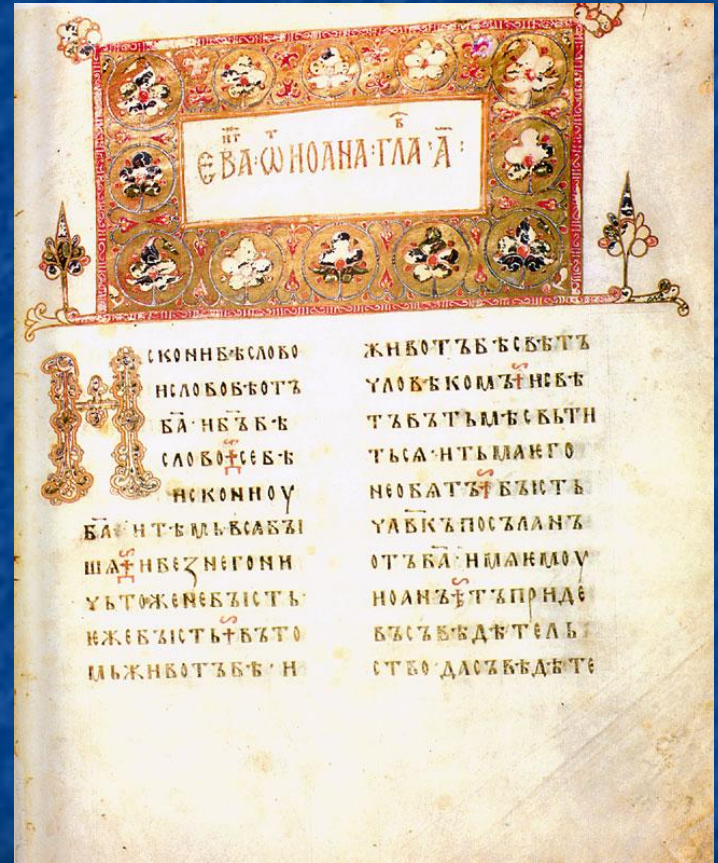 ЕВА҃НГ · Ѿ ИОАНА · ГЛАВ · А҃ :
ИСКОНИБѢСЛОВО
ИСЛОВОБѢОТЪ
БА҃ · ИБ҃ЪБѢ
СЛОВО СЕБѢ
ИСКОНИОУ
БА҃ ИТѢМЬВСꙖБЪI
ШѦ ИБЕЗНЕГОНИ
ЧЬТОЖЕНЕБЪIСТЬ ·
ѤЖЕБЪIСТЬ ВЪТО
МЬЖИВОТЪБѢ · И
ЖИВОТЪБѢСВѢТЪ
ЧЛОВѢКОМЪ ИСВѢ
ТЪВЪТЬМѢСВЬТИ
ТЬСѦ · ИТЬМАѤГО
НЕОБѦТЪ БЪIСТЬ
ЧЛ҃ВКЪПОСЪЛАНЪ
ОТЪБА҃ · ИМѦѤМОУ
ИОАНЪ ТЪПРИДЕ
ВЪСЪВѢДѢТЕЛЬ
СТВО · ДАСЪВѢДѢТЕ